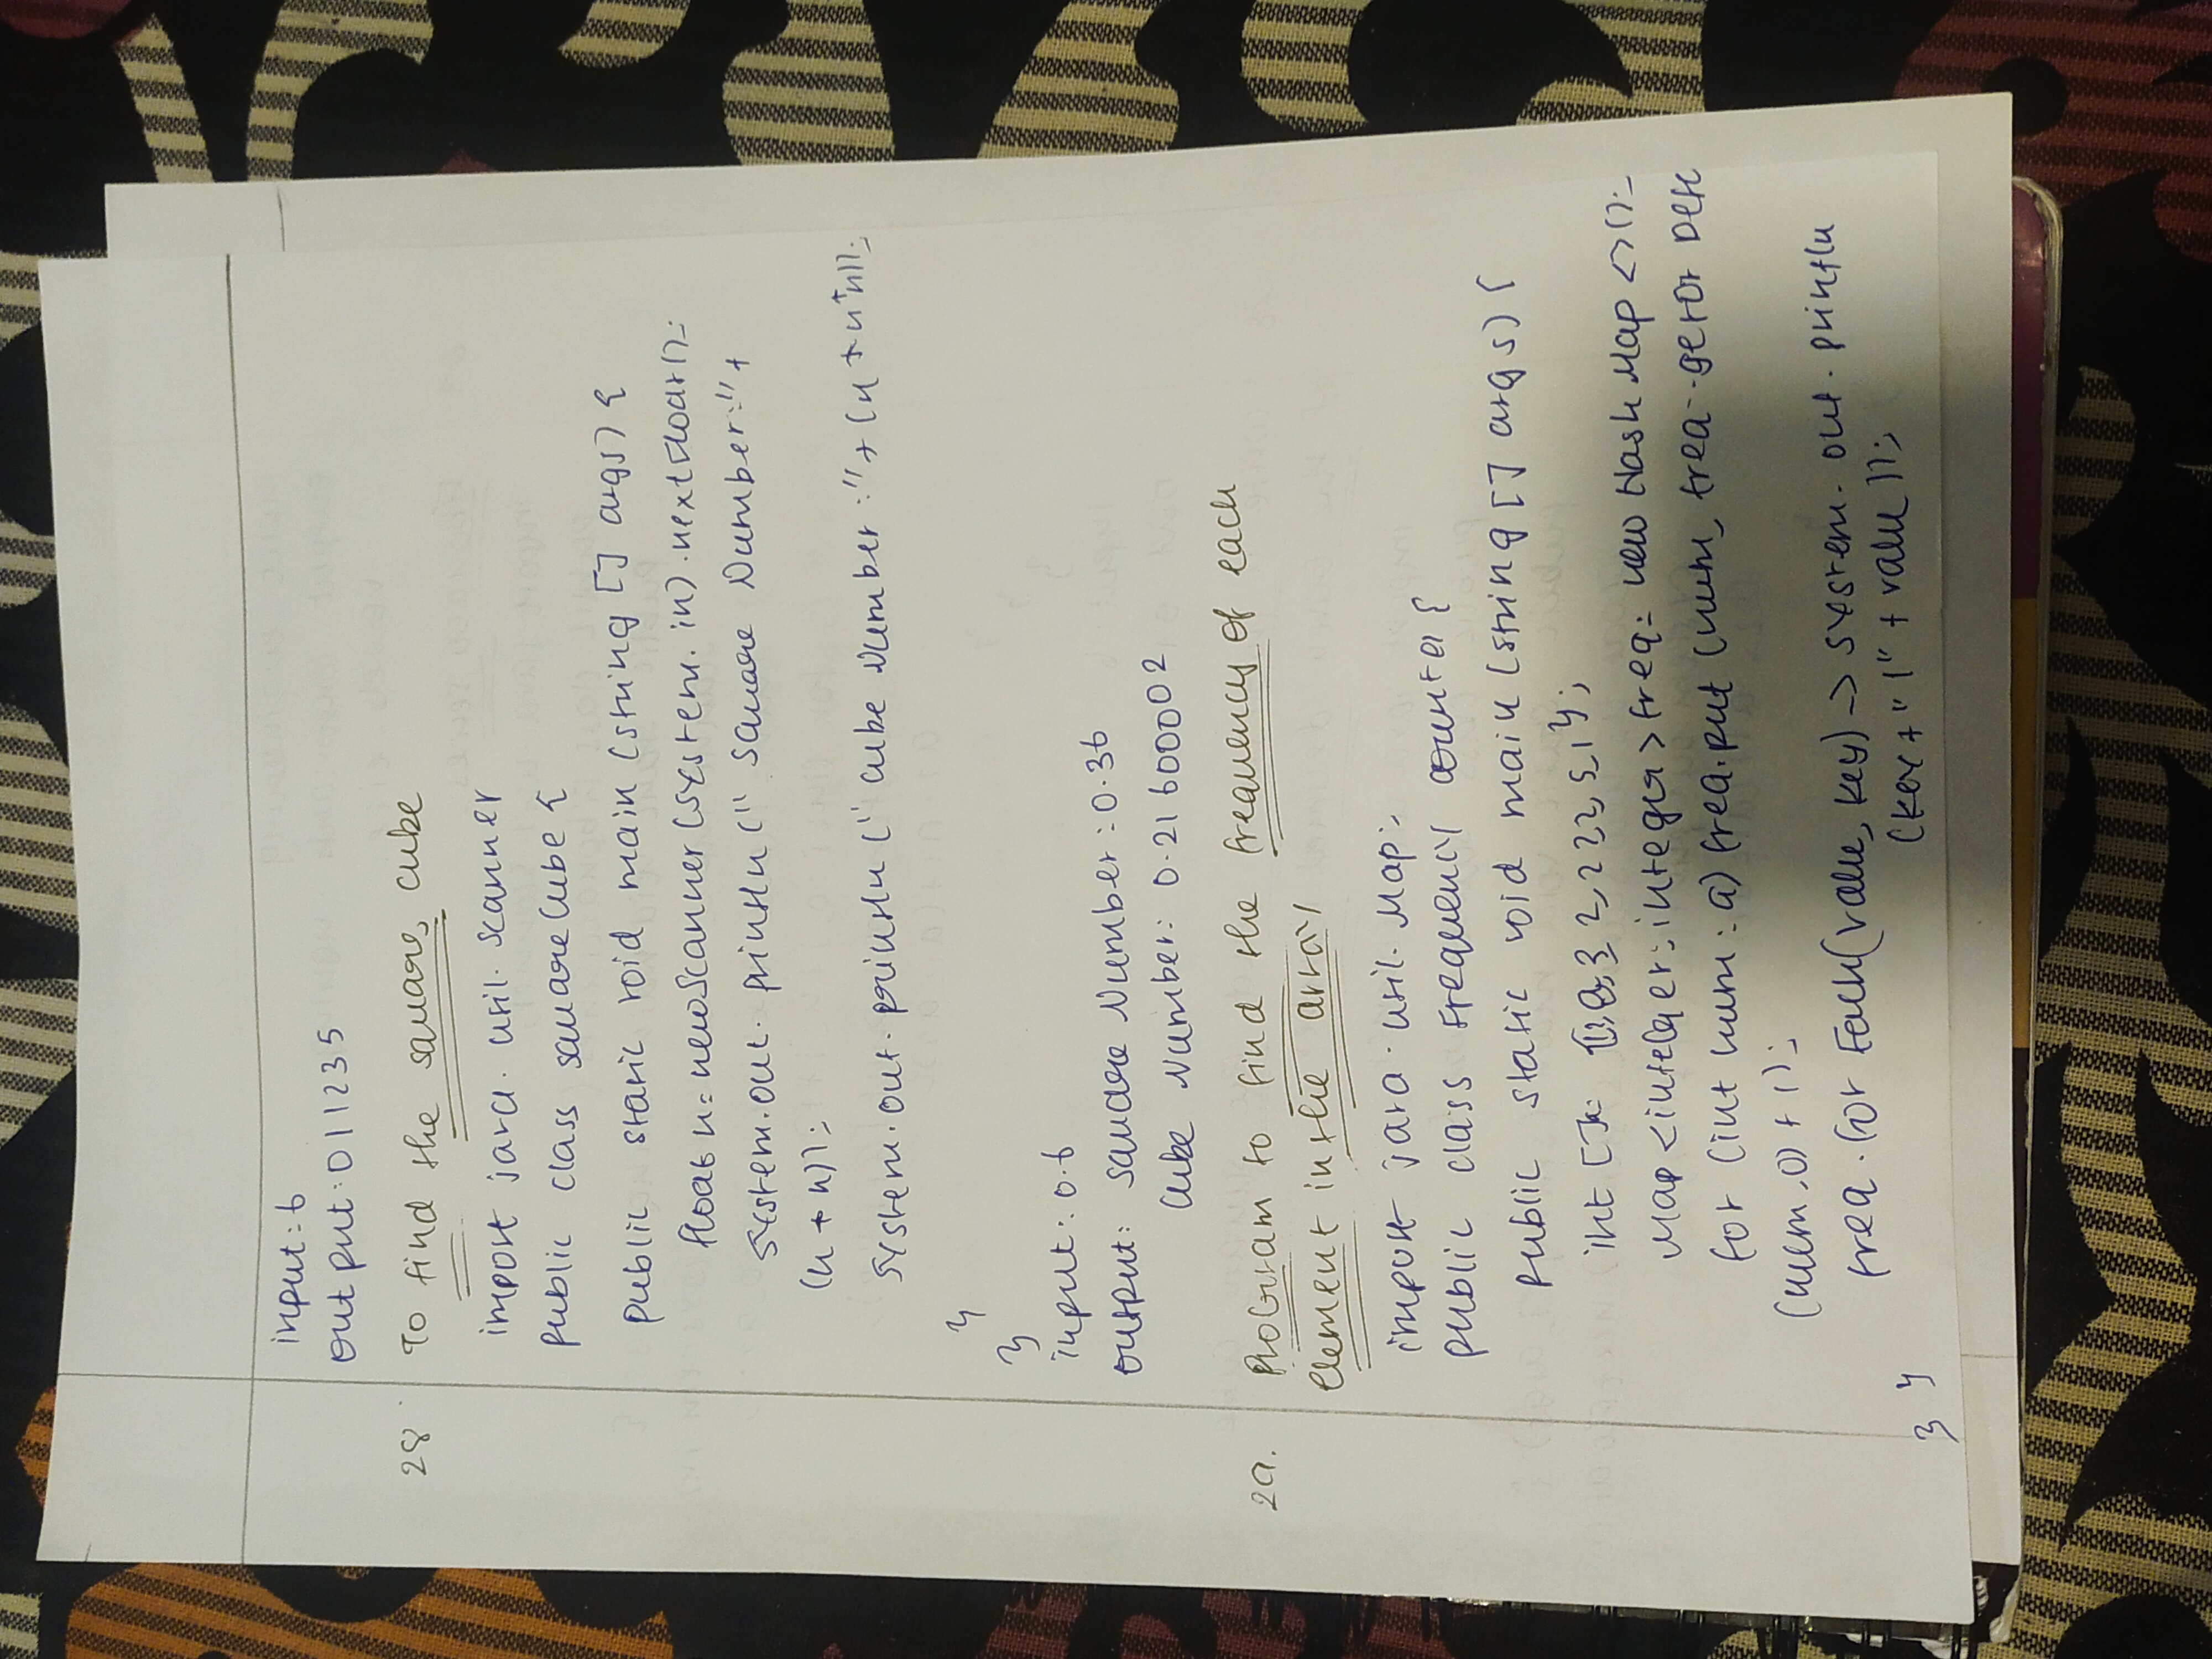 input: 6
output: 011235
28 To find the square, cube
import java. util. scanner
public class squareCube {
public static void main (string [] args) {
float n = newScanner (system. in) .nextFloat ();
system.out. println (" Square Number:" +
(n * n));
system.out. println (" Cube Number :" + (n * n * n));
}
}
input: 0.6
output: square Number : 0.36
Cube Number: 0.21600002
29. Program to find the frequency of each
element in the array
import java. util. Map;
public class Frequency counter {
public static void main (string [] args) {
int [] 2,222,5,1 };
Map <integer: integer> freq = new Hash Map <>();
for (int num : a) freq.put (num, freq .getOr
(num,0) + 1);
freq . for Each(value, key) -> system. out . println
(key + "|" + value ));
} }